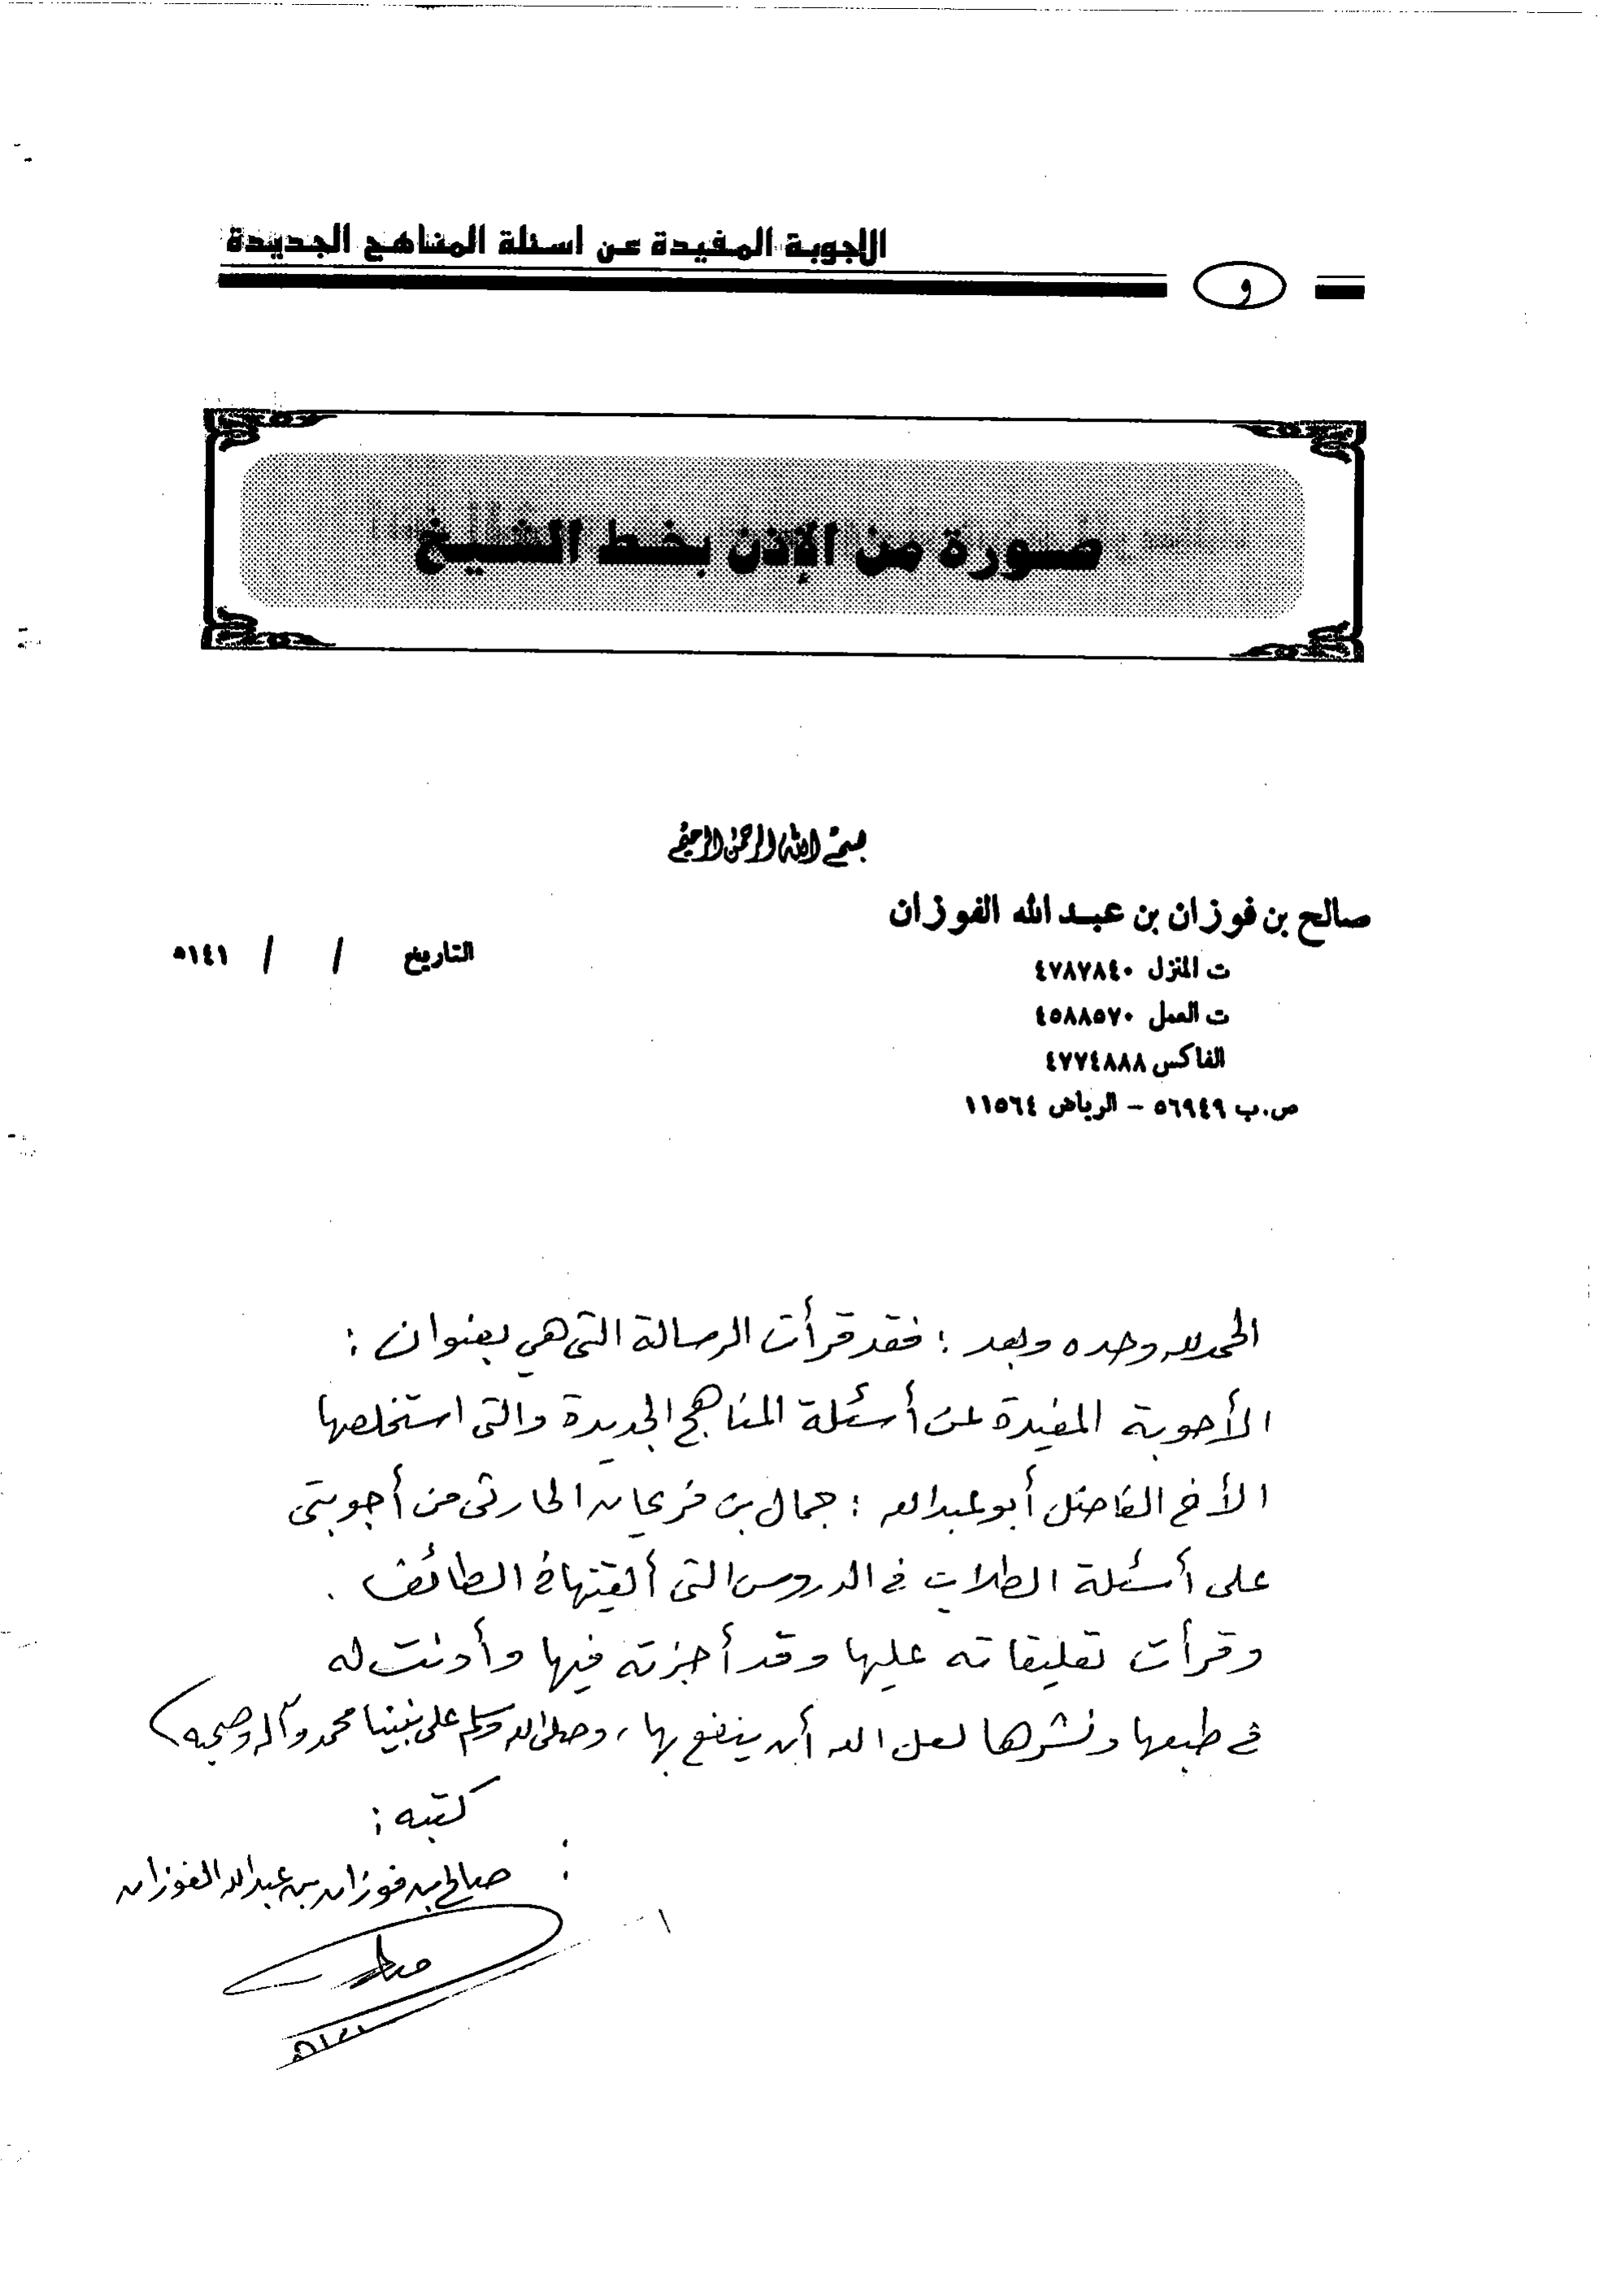 الاجوبة المفيدة عن اسئلة المناهج الجديدة
و
صورة من الإذن بخط الشيخ
بسم الله الرحمن الرحيم
صالح بن فوزان بن عبد الله الفوزان
ت المنزل ٤٧٨٧٨٤٠
التاريخ / / ١٤١هـ
ت العمل ٤٥٨٨٥٧٠
الفاكس ٤٧٧٤٨٨٨
ص.ب ٥٦٩٤٩ - الرياض ١١٥٦٤
الحمد لله وحده وبعد : فقد قرأت الرسالة التي هي بعنوان :
الأجوبة المفيدة عن أسئلة المناهج الجديدة والتي استخلصها
الأخ الفاضل أبو عبدالله : جمال بن فريحان الحارثي من أجوبتي
على أسئلة الطلاب في الدروس التي ألقيتها في الطائف .
وقرأت تعليقاته عليها وقد أجزته فيها وأذنت له
في طبعها ونشرها لعل الله أن ينفع بها، وصلى الله وسلم على نبينا محمد وآله وصحبه
كتبه :
صالح بن فوزان بن عبدالله الفوزان